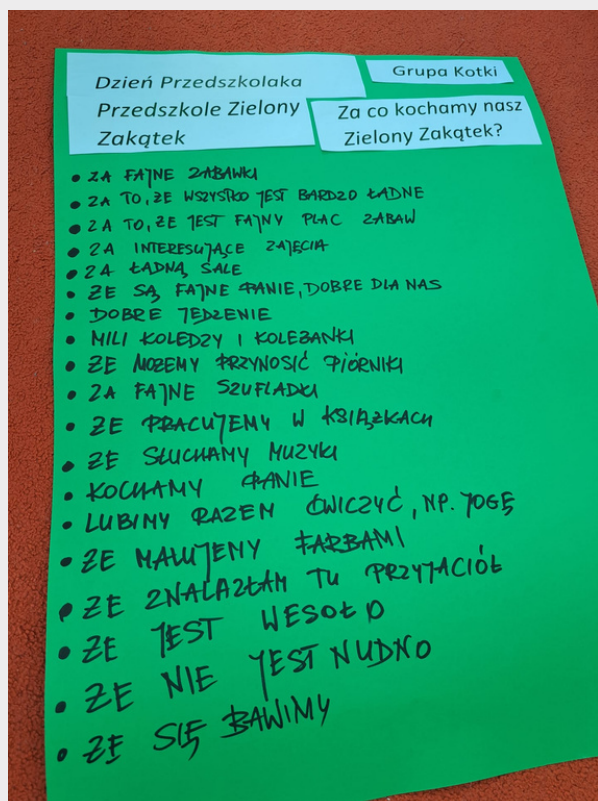 Dzień Przedszkolaka
Przedszkole Zielony
Zakątek
Grupa Kotki
Za co kochamy nasz
Zielony Zakątek?
• ZA FAJNE ZABAWKI
• ZA TO, ŻE WSZYSTKO JEST BARDZO ŁADNE
• ZA TO, ŻE JEST FAJNY PLAC ZABAW
• ZA INTERESUJĄCE ZAJĘCIA
• ZA ŁADNĄ SALE
• ŻE SĄ FAJNE PANIE, DOBRE DLA NAS
• DOBRE JEDZENIE
• MILI KOLEDZY I KOLEŻANKI
• ŻE MOŻEMY PRZYNOSIĆ PIÓRNIKI
• ZA FAJNE SZUFLADKI
• ŻE PRACUJEMY W KSIĄŻKACH
• ŻE SŁUCHAMY MUZYKI
• KOCHAMY PANIE
• LUBIMY RAZEM ĆWICZYĆ, NP. JOGĘ
• ŻE MALUJEMY FARBAMI
• ŻE ZNALAZŁAM TU PRZYJACIÓŁ
• ŻE JEST WESOŁO
• ŻE NIE JEST NUDNO
• ŻE SIĘ BAWIMY